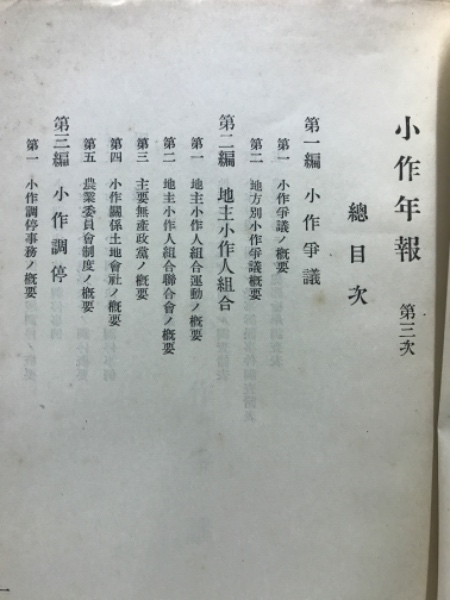 小作年報 第三次
總目次
第一編 小作爭議
第一 小作爭議ノ概要
第二 地方別小作爭議概要
第二編 地主小作人組合
第一 地主小作人組合運動ノ概要
第二 地主小作人組合聯合會ノ概要
第三 主要無產政黨ノ概要
第四 小作關係土地會社ノ概要
第五 農業委員會制度ノ概要
第三編 小作調停
第一 小作調停事務ノ概要
一